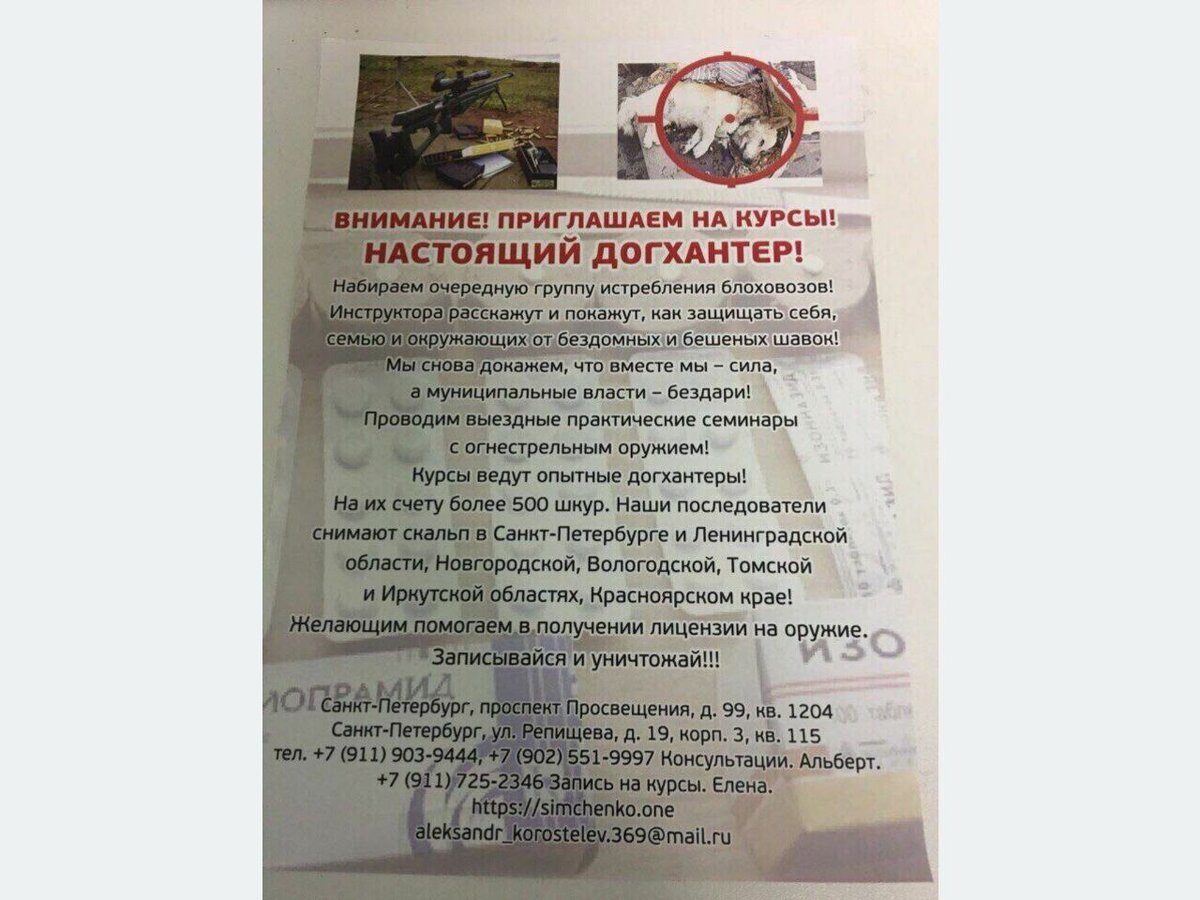 ВНИМАНИЕ! ПРИГЛАШАЕМ НА КУРСЫ!
НАСТОЯЩИЙ ДОГХАНТЕР!
Набираем очередную группу истребления блоховозов!
Инструктора расскажут и покажут, как защищать себя,
семью и окружающих от бездомных и бешеных шавок!
Мы снова докажем, что вместе мы – сила,
а муниципальные власти – бездари!
Проводим выездные практические семинары
с огнестрельным оружием!
Курсы ведут опытные догхантеры!
На их счету более 500 шкур. Наши последователи
снимают скальп в Санкт-Петербурге и Ленинградской
области, Новгородской, Вологодской, Томской
и Иркутской областях, Красноярском крае!
Желающим помогаем в получении лицензии на оружие.
Записывайся и уничтожай!!!
ИЗО
ИОПРАМИД
Санкт-Петербург, проспект Просвещения, д. 99, кв. 1204
Санкт-Петербург, ул. Репищева, д. 19, корп. 3, кв. 115
тел. +7 (911) 903-9444, +7 (902) 551-9997 Консультации. Альберт.
+7 (911) 725-2346 Запись на курсы. Елена.
https://simchenko.one
aleksandr_korostelev.369@mail.ru